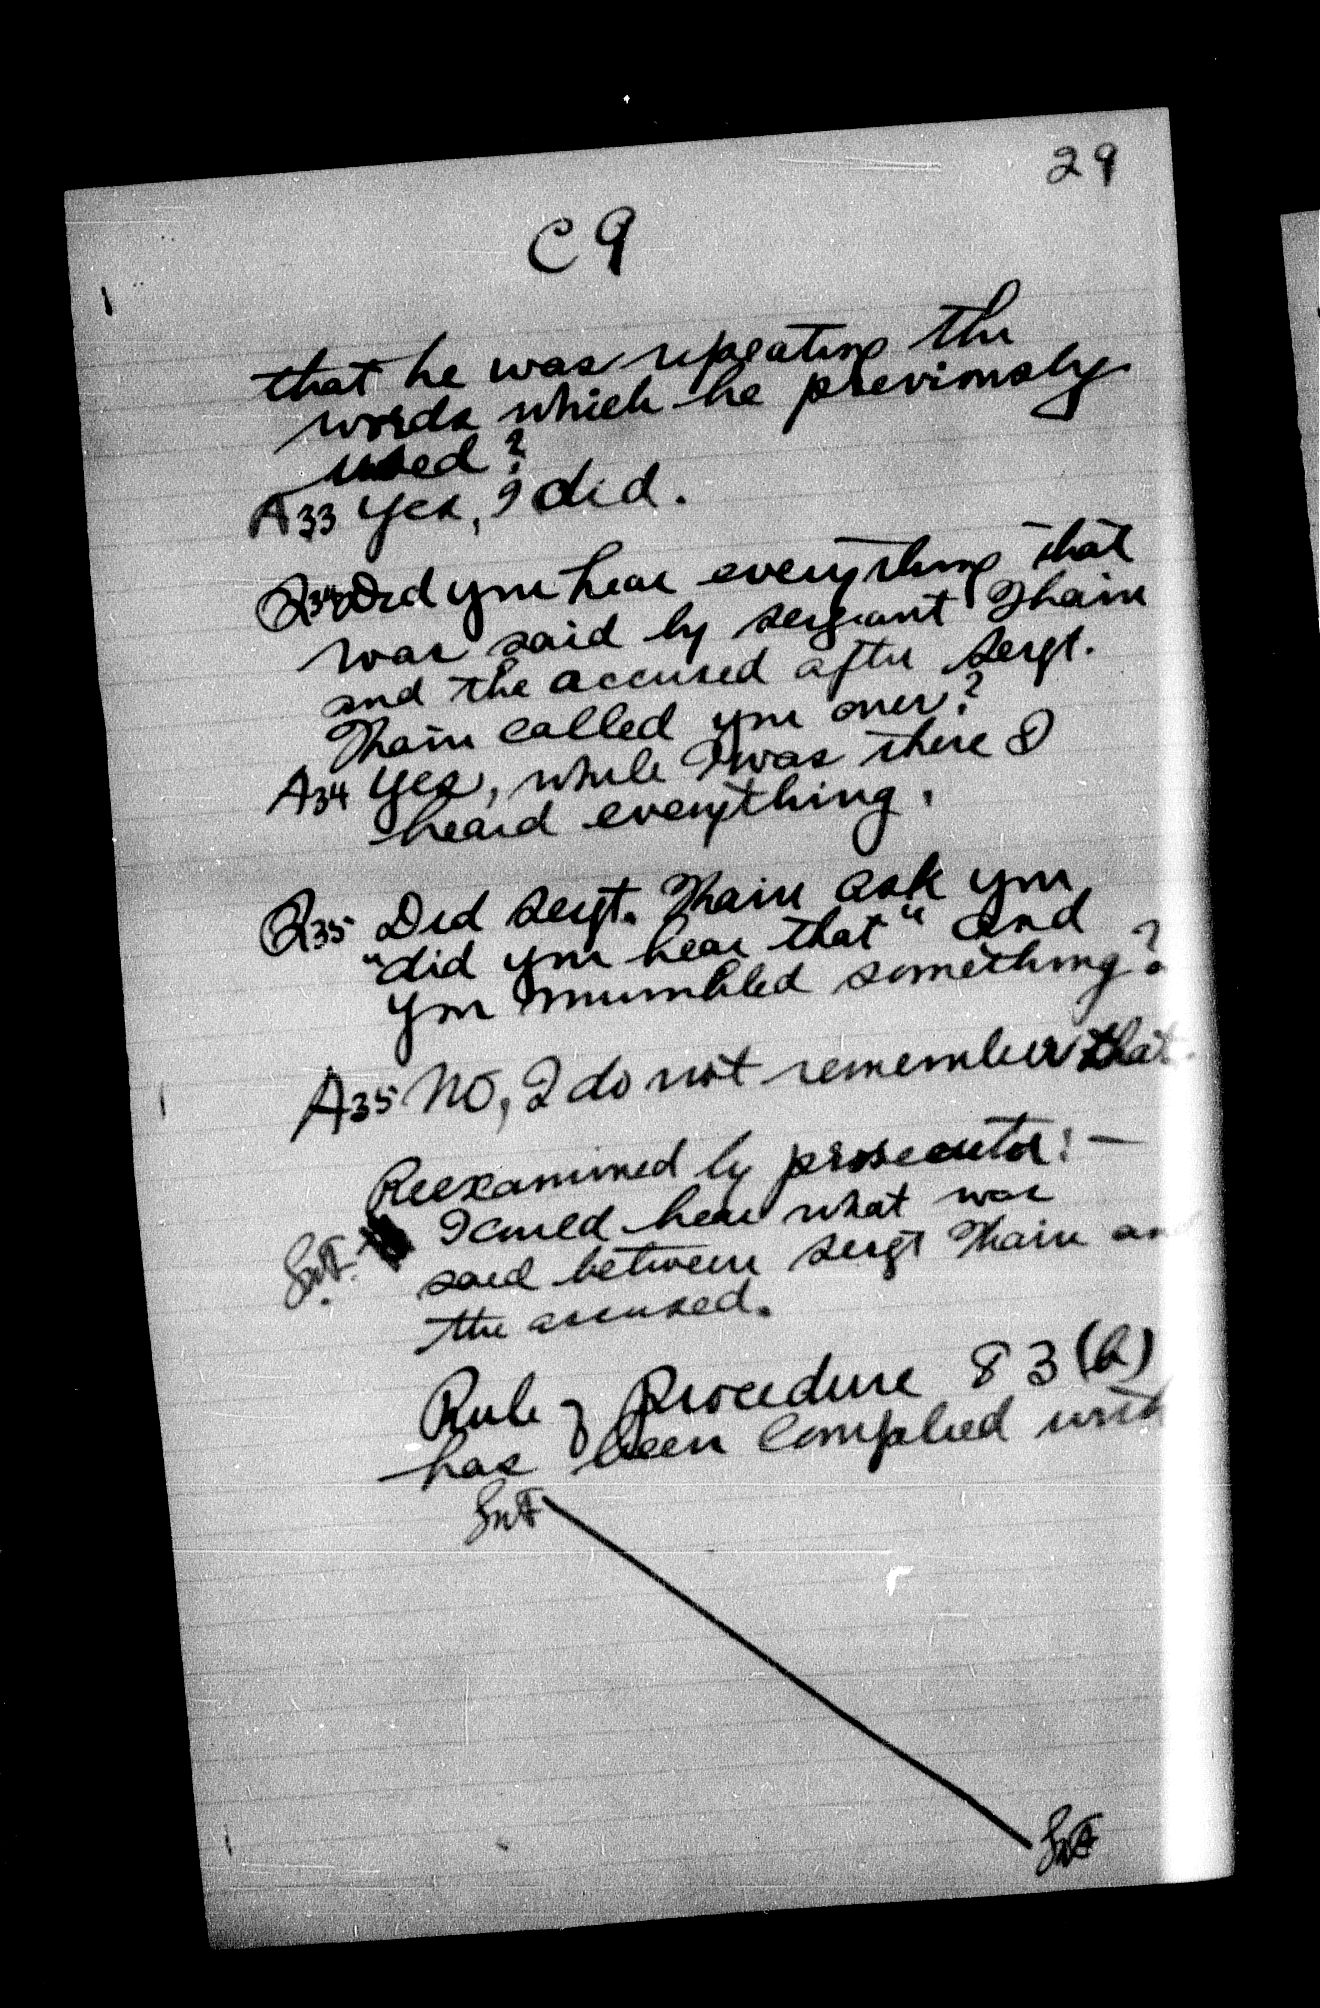 29
C9
that he was repeating the
words which he previously
used?
A33 Yes, I did.
Q34 Did you hear everything that
was said by sergeant Thain
and the accused after Sergt.
Thain called you over?
A34 Yes, while I was there I
heard everything.
Q35 Did Sergt. Thain ask you
"did you hear that" and
you mumbled something?
A35 No, I do not remember that.
Reexamined by prosecutor:—
I could hear what was
said between Sergt Thain and
the accused.
Rule of Procedure 83(b)
has been complied with